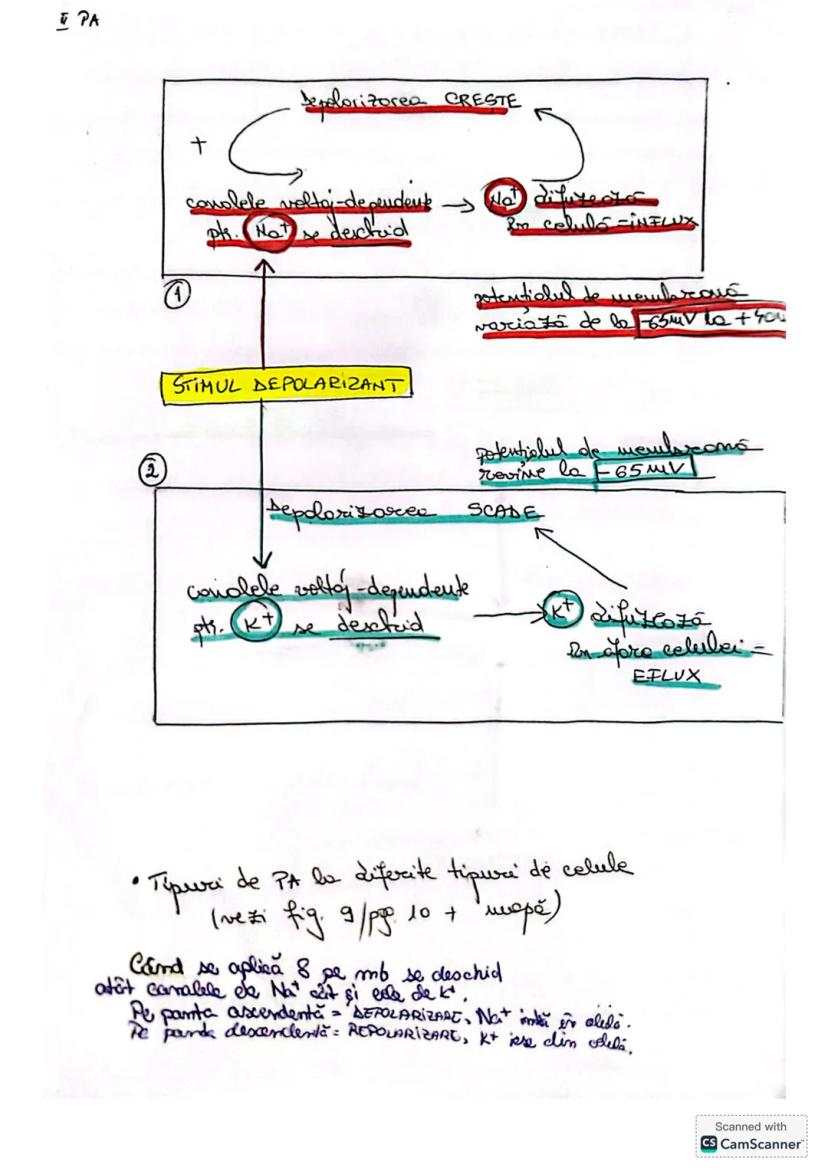 II PA
Depolarizarea CREȘTE
+
canalele voltaj-dependente → Na⁺ difuzează
ptr. Na⁺ se deschid
în celulă = INFLUX
1
potențialul de membrană
variază de la -65mV la +40m
STIMUL DEPOLARIZANT
potențialul de membrană
revine la -65mV
2
Depolarizarea SCADE
canalele voltaj-dependente
ptr. K⁺ se deschid
K⁺ difuzează
în afara celulei =
EFLUX
• Tipuri de PA la diferite tipuri de celule
(vezi fig. 9/pg. 10 + mapă)
Când se aplică S pe mb se deschid
atât canalele de Na⁺ cât și cele de K⁺.
Pe panta ascendentă = DEPOLARIZARE, Na⁺ intră în celulă.
Pe panta descendentă = REPOLARIZARE, K⁺ iese din celulă.
Scanned with
CS CamScanner